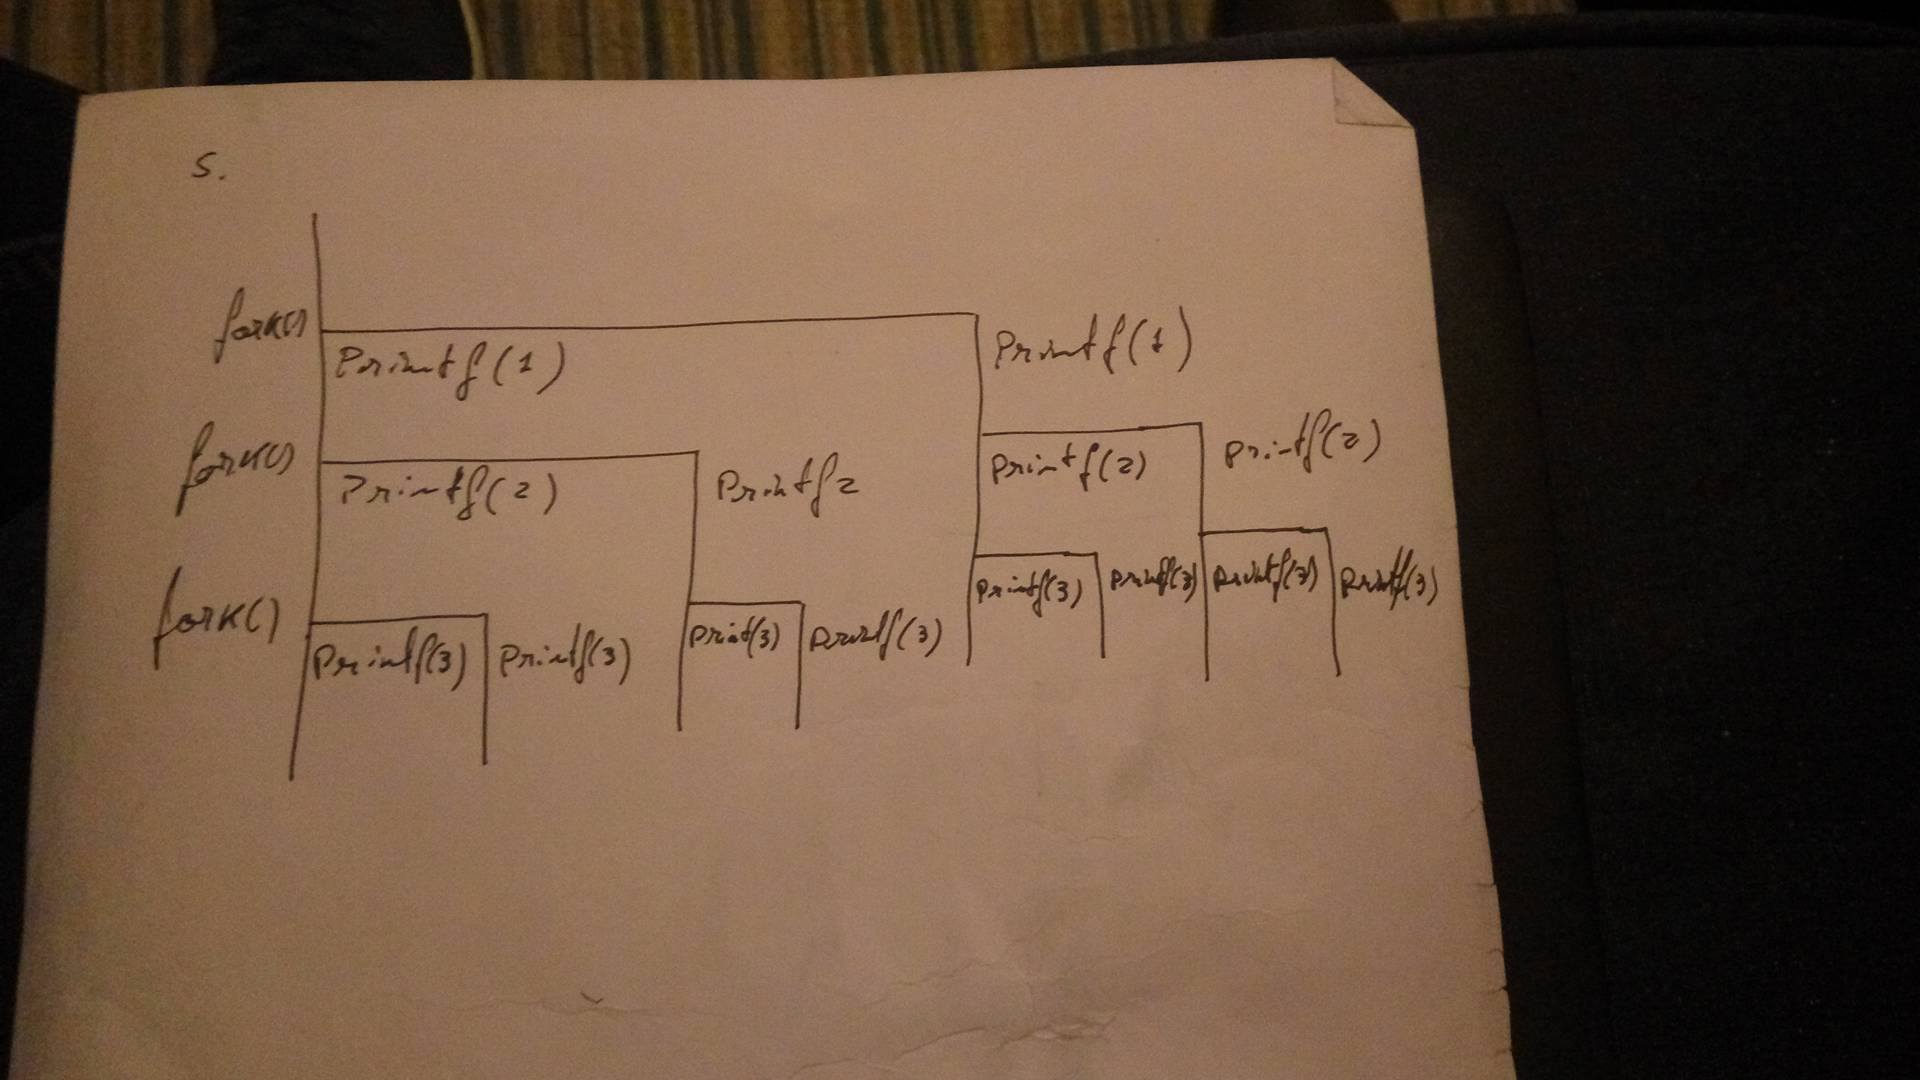 5.
fork()
Printf(1)
Printf(1)
fork()
Printf(2)
Printf2
Printf(2)
Printf(2)
fork()
Printf(3)
Printf(3)
Print(3)
Printf(3)
Printf(3)
Printf(3)
Printf(3)
Printf(3)